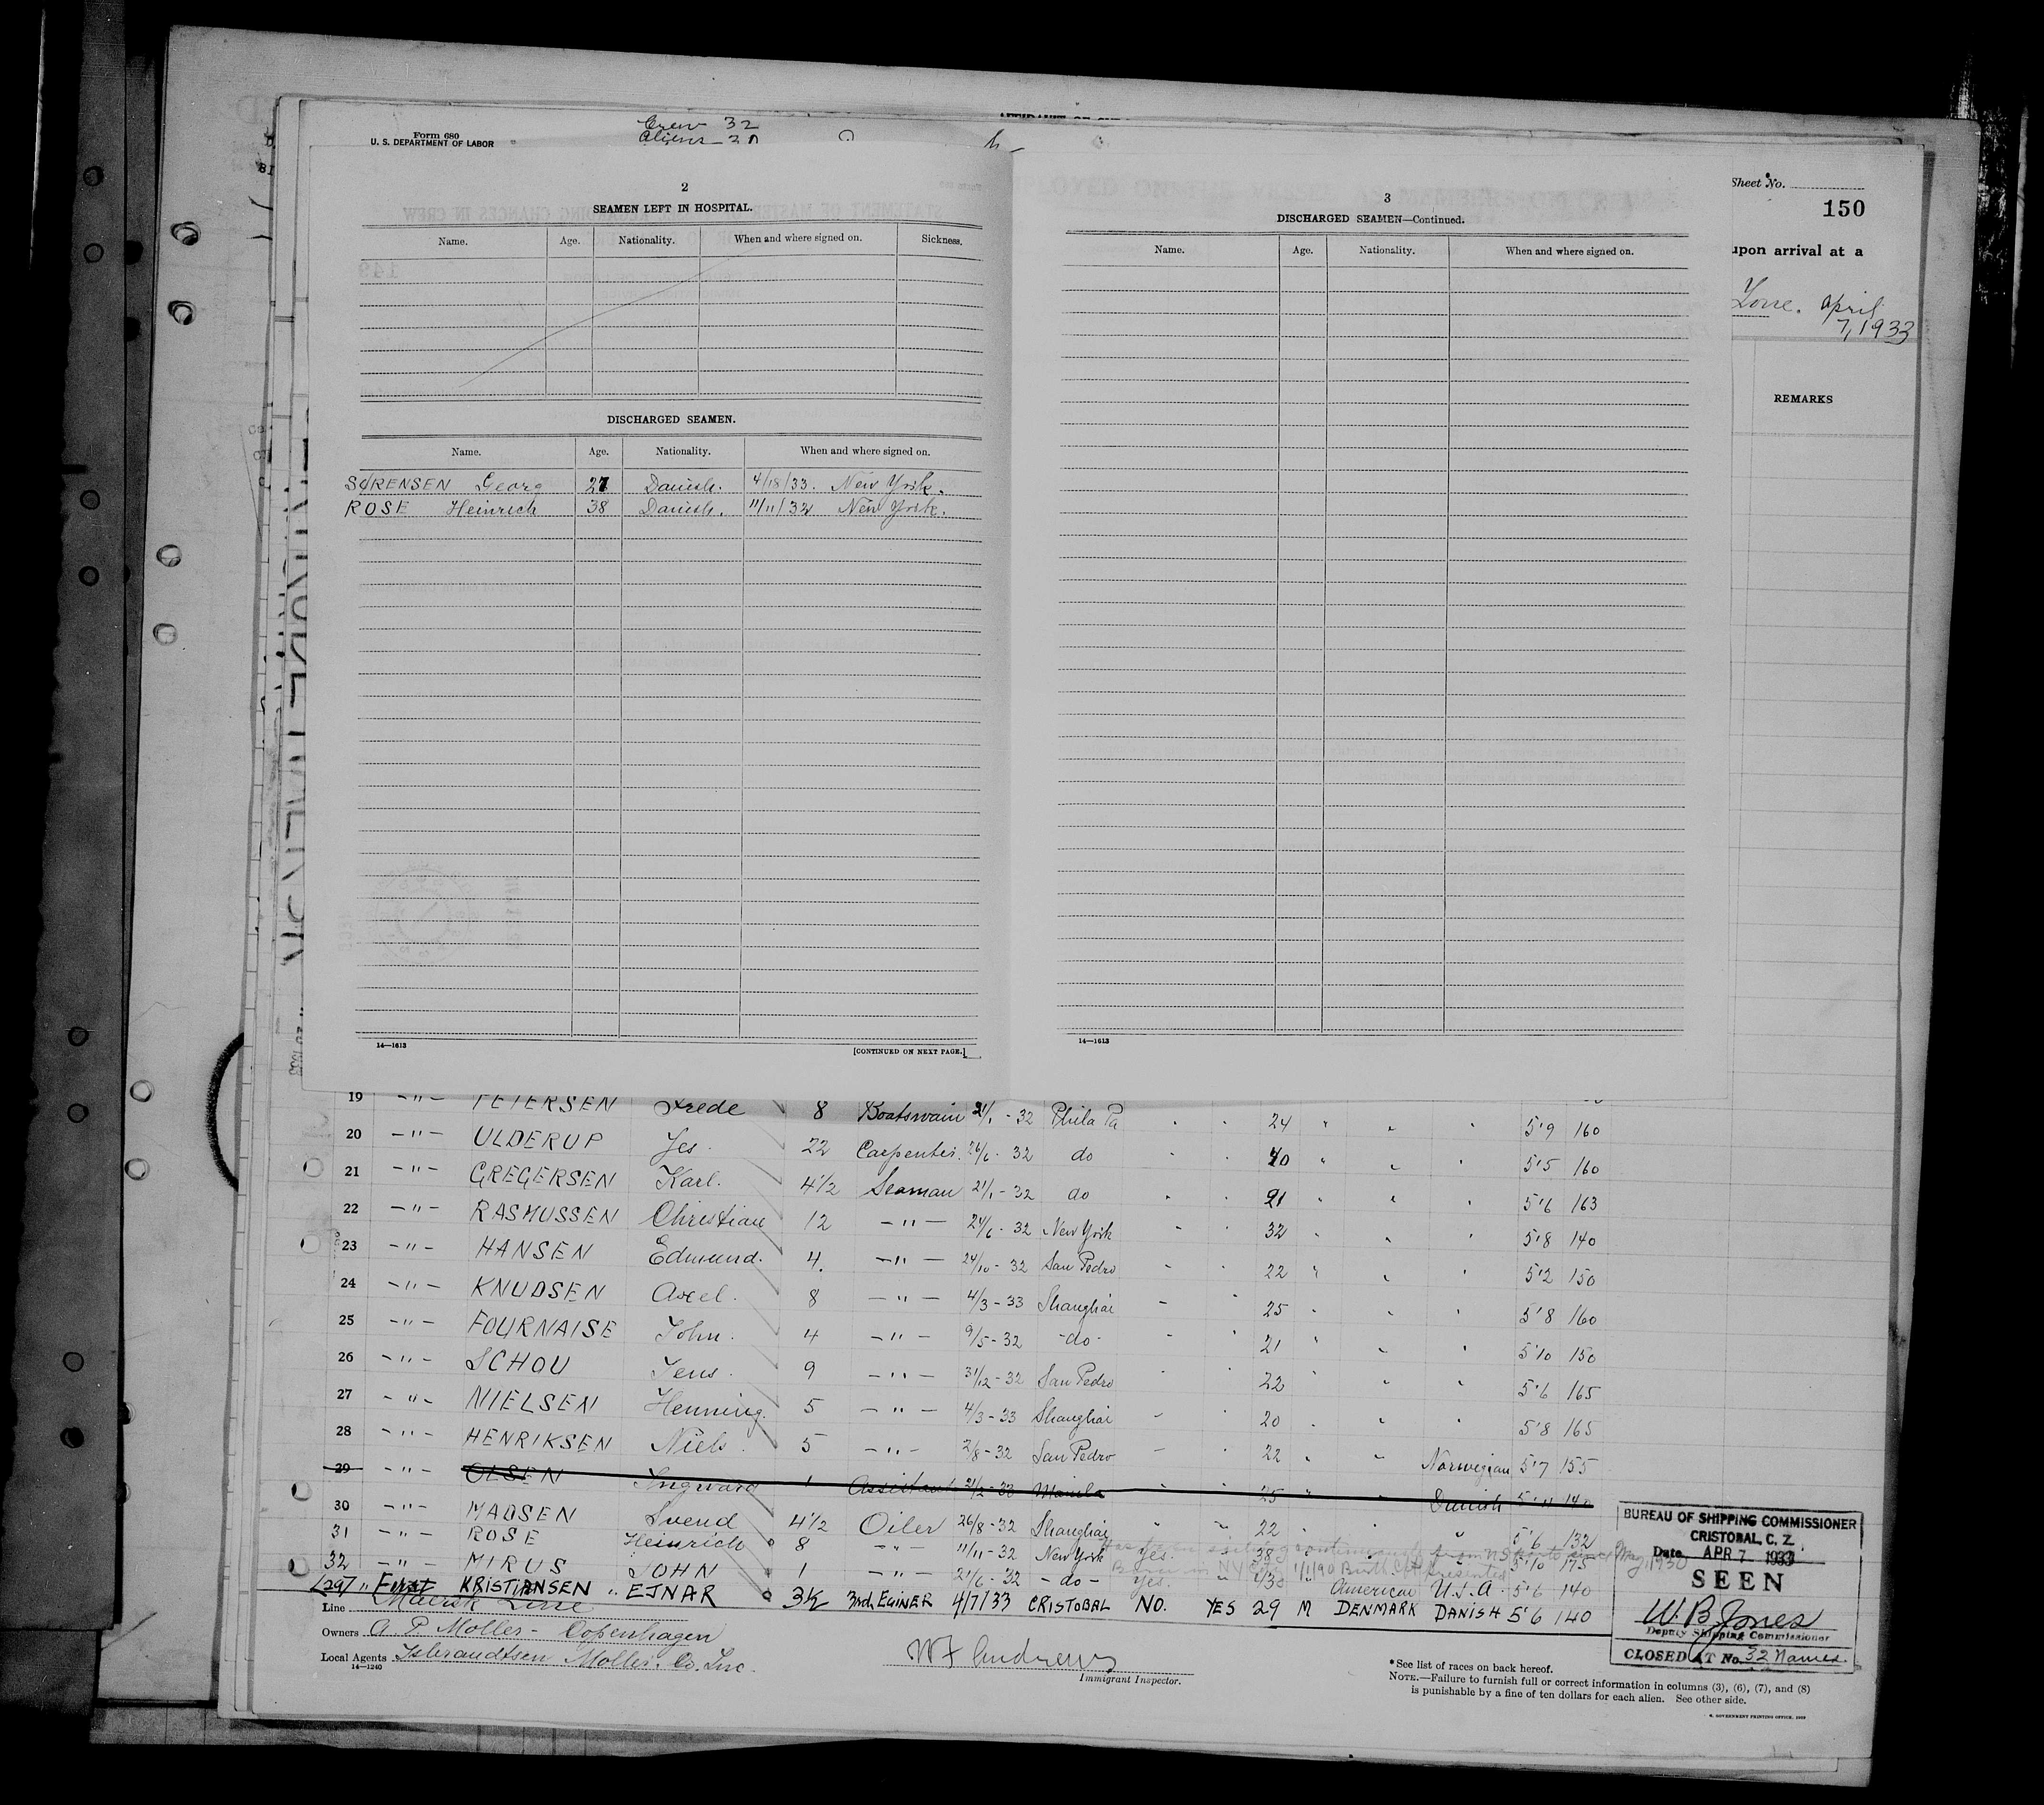 Form 680
U. S. DEPARTMENT OF LABOR
Crew 32
Sheet No.
150
upon arrival at a
Zone. April
7, 1933
REMARKS
2
SEAMEN LEFT IN HOSPITAL.
Name. Age. Nationality. When and where signed on. Sickness.
DISCHARGED SEAMEN.
Name. Age. Nationality. When and where signed on.
SØRENSEN Georg 27 Danish. 4/18/33. New York.
ROSE Heinrich 38 Danish. 11/11/32 New York.
14—1613
[CONTINUED ON NEXT PAGE.]
3
DISCHARGED SEAMEN—Continued.
Name. Age. Nationality. When and where signed on.
14—1613
19 —"— PETERSEN Frede 8 Boatswain 21/1 - 32 Phila Pa 24 5'9 160
20 —"— ULDERUP Jes. 22 Carpenter. 26/6 - 32 do 40 5'5 160
21 —"— GREGERSEN Karl. 4 1/2 Seaman 21/1 - 32 do 21 5'6 163
22 —"— RASMUSSEN Christian 12 —"— 24/6 - 32 New York 32 5'8 140
23 —"— HANSEN Edmund. 4. —"— 24/10 - 32 San Pedro 22 5'2 150
24 —"— KNUDSEN Axel. 8 —"— 4/3 - 33 Shanghai 25 5'8 160
25 —"— FOURNAISE John. 4 —"— 9/5 - 32 -do- 21 5'10 150
26 —"— SCHOU Jens. 9 —"— 31/12 - 32 San Pedro 22 5'6 165
27 —"— NIELSEN Henning. 5 —"— 4/3 - 33 Shanghai 20 5'8 165
28 —"— HENRIKSEN Niels. 5 —"— 2/8 - 32 San Pedro 22 Norwegian 5'7 155
29 —"— OLSEN Ingvard 1 Assistant 21/2 - 33 Manila 25 Danish 5'11 140
30 —"— MADSEN Svend 4 1/2 Oiler 26/8 - 32 Shanghai 22 5'6 132
31 —"— ROSE Heinrich 8 —"— 11/11 - 32 New York Yes. 38 5'10 175
32 —"— MIRUS JOHN 1 —"— 21/6 - 32 -do- Yes American U.S.A. 5'6 140
(29) " First KRISTIANSEN " EJNAR 3 1/2 3rd EGINER 4/7/33 CRISTOBAL NO. YES 29 M DENMARK DANISH 5'6 140
Line Maersk Line
Owners A. P. Moller - Copenhagen
Local Agents Isbrandtsen Moller. Co. Inc.
14—1240
W F Andrews
Immigrant Inspector.
BUREAU OF SHIPPING COMMISSIONER
CRISTOBAL, C. Z.
Date APR 7 1933
SEEN
W. B. Jones
Deputy Shipping Commissioner
CLOSED AT No. 32 Names.
*See list of races on back hereof.
NOTE.—Failure to furnish full or correct information in columns (3), (6), (7), and (8)
is punishable by a fine of ten dollars for each alien. See other side.